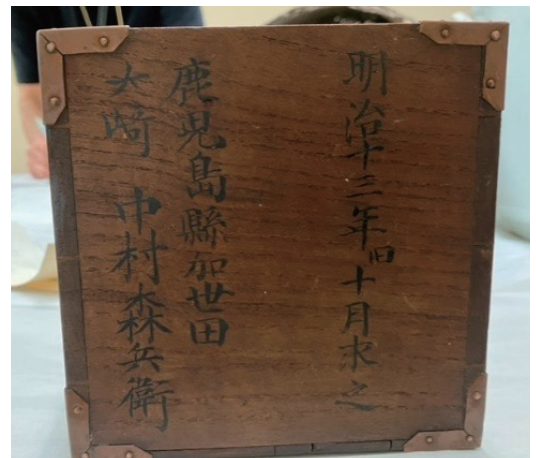 明治十三年旧十月求之
鹿児島縣加世田
大崎 中村森兵衛